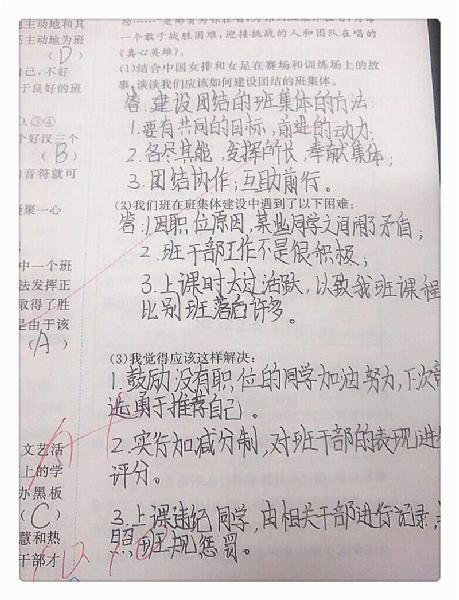 一个敢于战胜困难，迎接挑战的人和团队在唱的
《真心英雄》。
(1)结合中国女排和女足在赛场和训练场上的故
事，谈谈我们应该如何建设团结的班集体。
答：建设团结的班集体的方法：
1.要有共同的目标，前进的动力；
2.各尽其能，发挥所长，奉献集体；
3.团结协作；互助前行。
(2)我们班在班集体建设中遇到了以下困难：
答：1.因职位原因，某些同学之间闹了矛盾；
2.班干部工作不是很积极；
3.上课时太过活跃，以致我班课程
比别班落后许多。
(3)我觉得应该这样解决：
1.鼓励没有职位的同学加油努力，下次
勇于推荐自己。
2.实行加减分制，对班干部的表现进
评分。
3.上课违纪同学，由相关干部进行记录，
照班规惩罚。
主动地和其
主动地为班
(D)
己，不好
于良好的班
D.③④
个好汉三个
(B)
音符就可
聚一心
中一个班
法发挥正
取得了胜
是由于该
(A)
文艺活
上的学
办黑板
(C)
慧和热
干部才